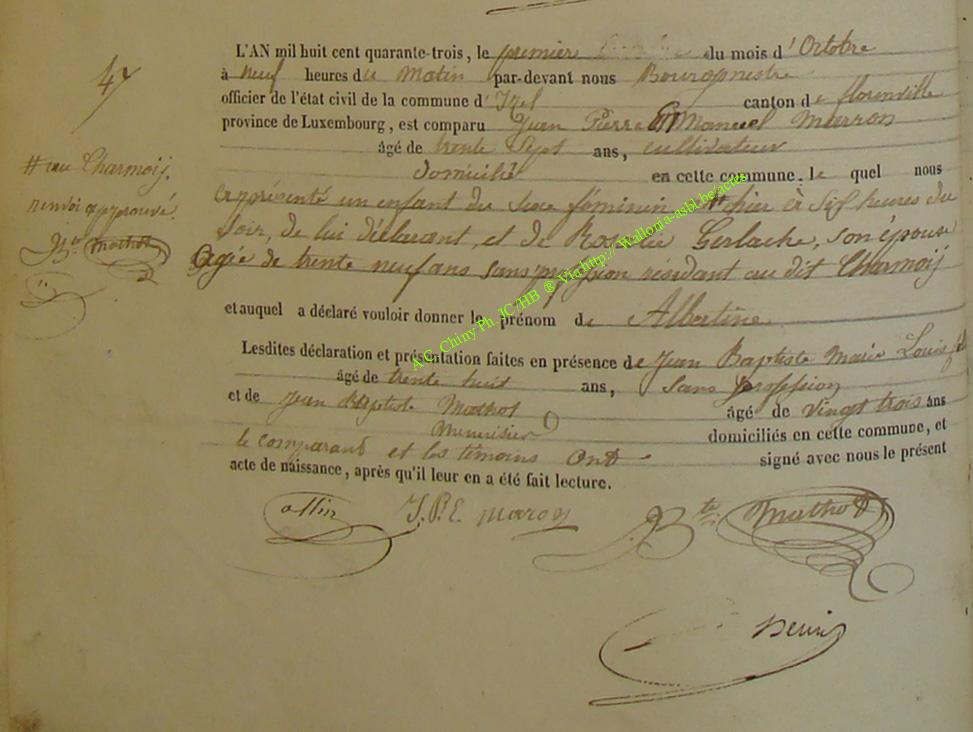 47
L'AN mil huit cent quarante-trois, le premier du mois d'Octobre
à neuf heures du matin par-devant nous Bourgmestre
officier de l'état civil de la commune d'Izel canton de florenville
province de Luxembourg, est comparu Jean Pierre Emmanuel Marron
âgé de trente Sept ans, cultivateur
Domicilié en cette commune, le quel nous
# au Charmois.
renvoi approuvé.
Bte Mathot
a présenté un enfant du Sexe féminin # hier à Six heures du
Soir, de lui déclarant, et de Rosalie Gerlache, son épouse
Agée de trente neuf ans sans profession résidant au dit Charmois
et auquel a déclaré vouloir donner le prénom de Albertine
Lesdites déclaration et présentation faites en présence de Jean Baptiste Marie Louis
âgé de trente huit ans, Sans profession
et de Jean Baptiste Mathot âgé de vingt trois ans
Menuisier domiciliés en cette commune, et
le comparant et les témoins ont signé avec nous le présent
acte de naissance, après qu'il leur en a été fait lecture.
J. P. E. maron
Bte Mathot
A.G. Chiny Ph. JC/HB ® Via http://Wallonia-asbl.be/actes